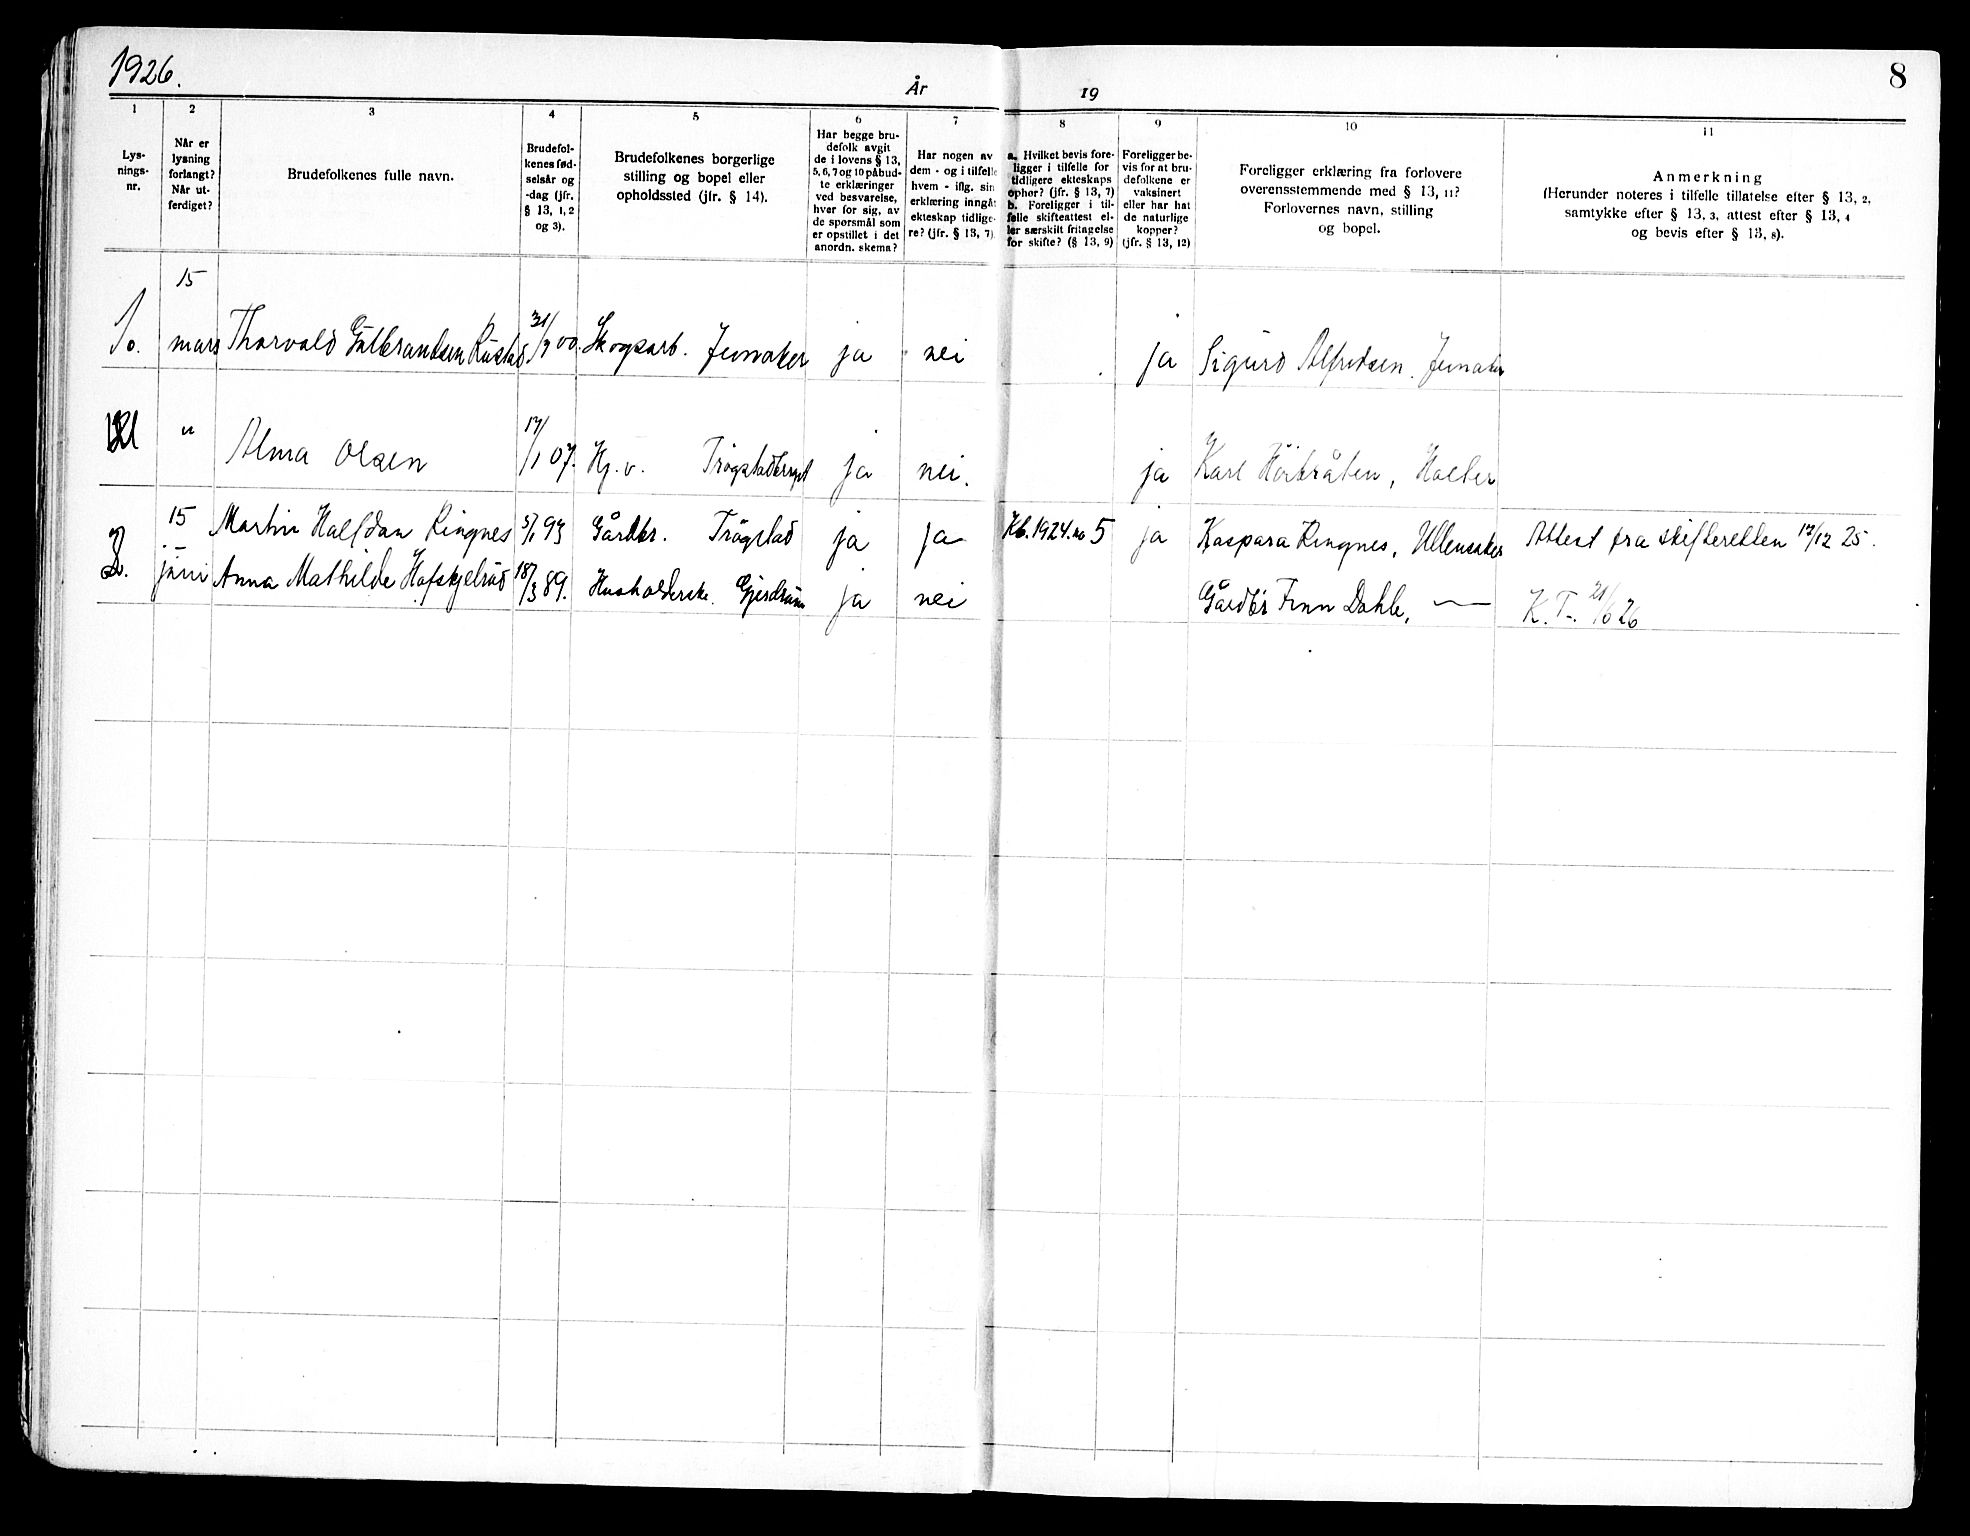 1926.
År 19
8
1 2 3 4 5 6 7 8 9 10 11
Lys-
nings-
nr.
Når er
lysning
forlangt?
Når ut-
ferdiget?
Brudefolkenes fulle navn.
Brudefol-
kenes fød-
selsår og
-dag (jfr.
§ 13, 1, 2
og 3).
Brudefolkenes borgerlige
stilling og bopel eller
opholdssted (jfr. § 14).
Har begge bru-
defolk avgit
de i lovens § 13,
5, 6, 7 og 10 påbud-
te erklæringer
ved besvarelse,
hver for sig, av
de spørsmål som
er opstillet i det
anordn. skema?
Har nogen av
dem - og i tilfelle
hvem - iflg. sin
erklæring inngåt
ekteskap tidlige-
re? (jfr. § 13, 7).
a. Hvilket bevis fore-
ligger i tilfelle for
tidligere ekteskaps
ophør? (jfr. § 13, 7)
b. Foreligger i til-
felle skifteattest el-
ler særskilt fritagelse
for skifte? (§ 13, 9)
Foreligger be-
vis for at bru-
defolkene er
vaksinert
eller har hat
de naturlige
kopper?
(jfr. § 13, 12)
Foreligger erklæring fra forlovere
overensstemmende med § 13, 11?
Forlovernes navn, stilling
og bopel.
Anmerkning
(Herunder noteres i tilfelle tillatelse efter § 13, 2,
samtykke efter § 13, 3, attest efter § 13, 4
og bevis efter § 13, 8).
15
mars Thorvald Gulbrandsen Rustad 31/ 00. Skogsarb. Jevnaker ja nei ja Sigurd Alfredsen. Jevnaker
" Alma Olsen 17/1 07. Hj. v. ja nei. ja Karl , Holter
2. 15 Martin Halfdan Ringnes 5/1 93 Gårdbr. Trøgstad ja ja Kb. 1924. no 5 ja Kaspara Ringnes, Ullensaker Attest fra skifteretten 17/12 25.
juni Anna Mathilde Hofskjelrud 18/3 89. Husholderske. Gjerdrum ja nei Gårdbr Finn Dahle, — K. T. 21/6 26